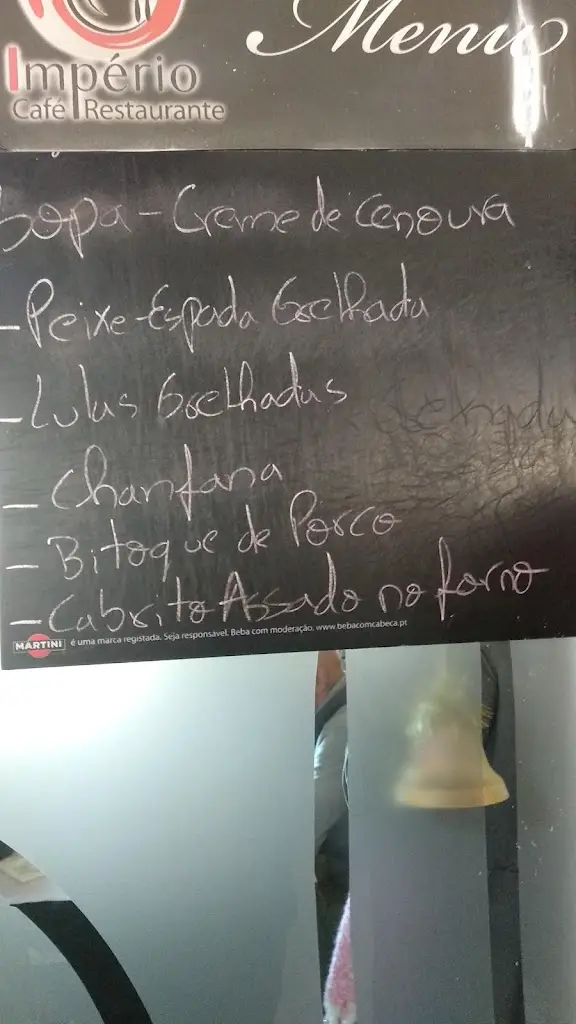 Menu
Império
Café Restaurante
Sopa - Creme de Cenoura
- Peixe-Espada Grelhada
- Lulas Grelhadas
- Chanfana
- Bitoque de Porco
- Cabrito Assado no forno
MARTINI é uma marca registada. Seja responsável. Beba com moderação. www.bebacomcabeca.pt